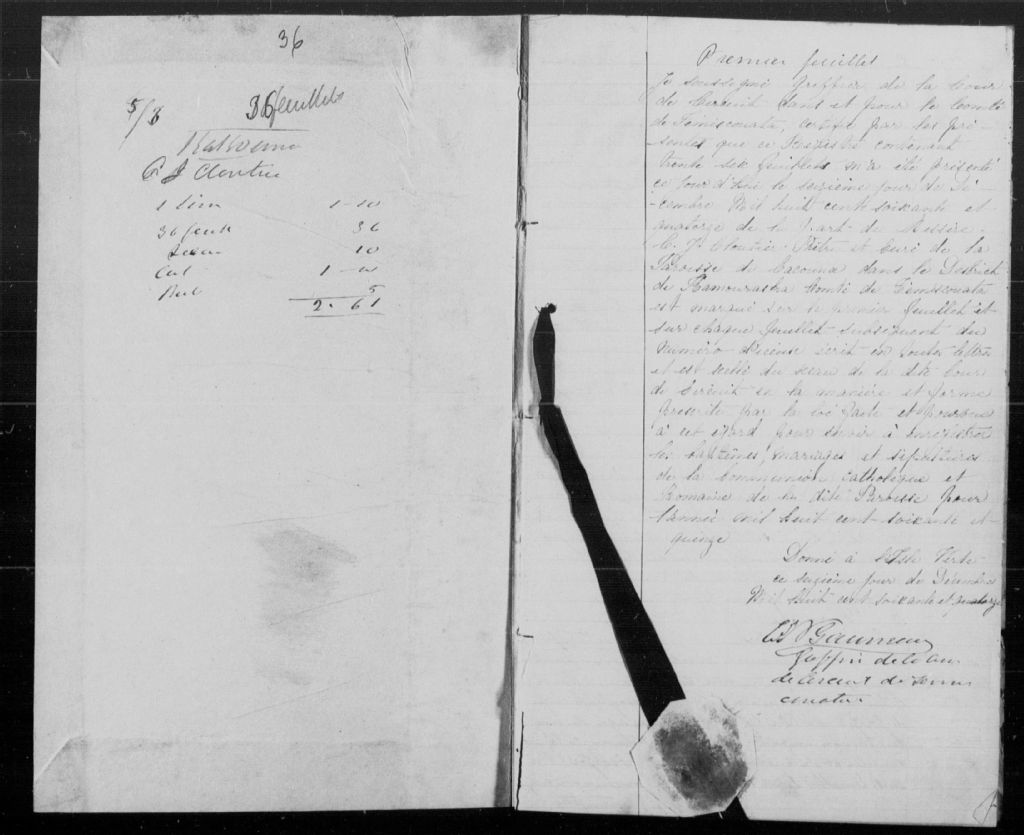 36
5/8
36 feuillets
Kakouna
C J Cloutier
1 livre 1-10
36 feuil 36
Sceau 10
Cert 1-10
Recl 5
2.61
Premier feuillet
Je soussigné Greffier de la Cour
de Circuit dans et pour le Comté
de Temiscouata, certifie par les pré-
sentes que ce Registre contenant
trente six feuillets m'a été présenté
ce jour d'hui le seizième jour de Dé-
-cembre Mil huit cent soixante et
quatorze de la part de Messire
C. J. Cloutier Prêtre et Curé de la
Paroisse de Cacouna dans le District
de Kamouraska Comté de Temiscouata
est marqué sur le premier feuillet et
sur chaque feuillet subséquent du
Numéro d'icense écrit en toutes lettres
et est scellé du sceau de la dite Cour
de Circuit en la manière et forme
prescrite par la loi faite et pourvue
à cet égard pour servir à enregistrer
les baptêmes, mariages et sépultures
de la Communion Catholique et
Romaine de la dite Paroisse pour
l'année mil huit cent soixante et
quinze
Donné à l'Isle Verte
ce seizième jour de Décembre
Mil huit cent soixante et quatorze
Greffier de la Cour
de Circuit de Temis
couata